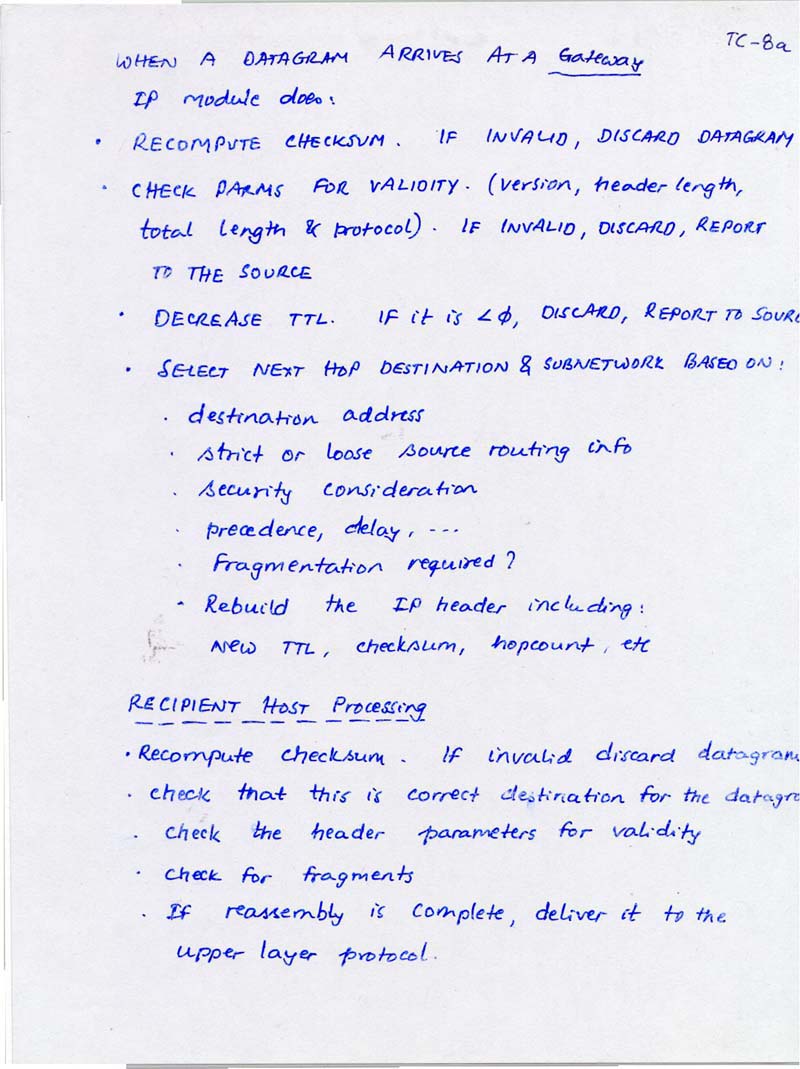 TC-8a
WHEN A DATAGRAM ARRIVES AT A Gateway
IP module does:
• RECOMPUTE CHECKSUM. IF INVALID, DISCARD DATAGRAM
• CHECK PARMS FOR VALIDITY. (version, header length,
total length & protocol). IF INVALID, DISCARD, REPORT
TO THE SOURCE
• DECREASE TTL. IF it is <φ, DISCARD, REPORT TO SOURC
• SELECT NEXT HOP DESTINATION & SUBNETWORK BASED ON:
• destination address
• strict or loose source routing info
• security consideration
• precedence, delay, ---
• Fragmentation required?
• Rebuild the IP header including:
NEW TTL, checksum, hopcount, etc
RECIPIENT HOST Processing
• Recompute checksum. If invalid discard datagram
• check that this is correct destination for the datagra
• check the header parameters for validity
• check for fragments
• If reassembly is complete, deliver it to the
upper layer protocol.